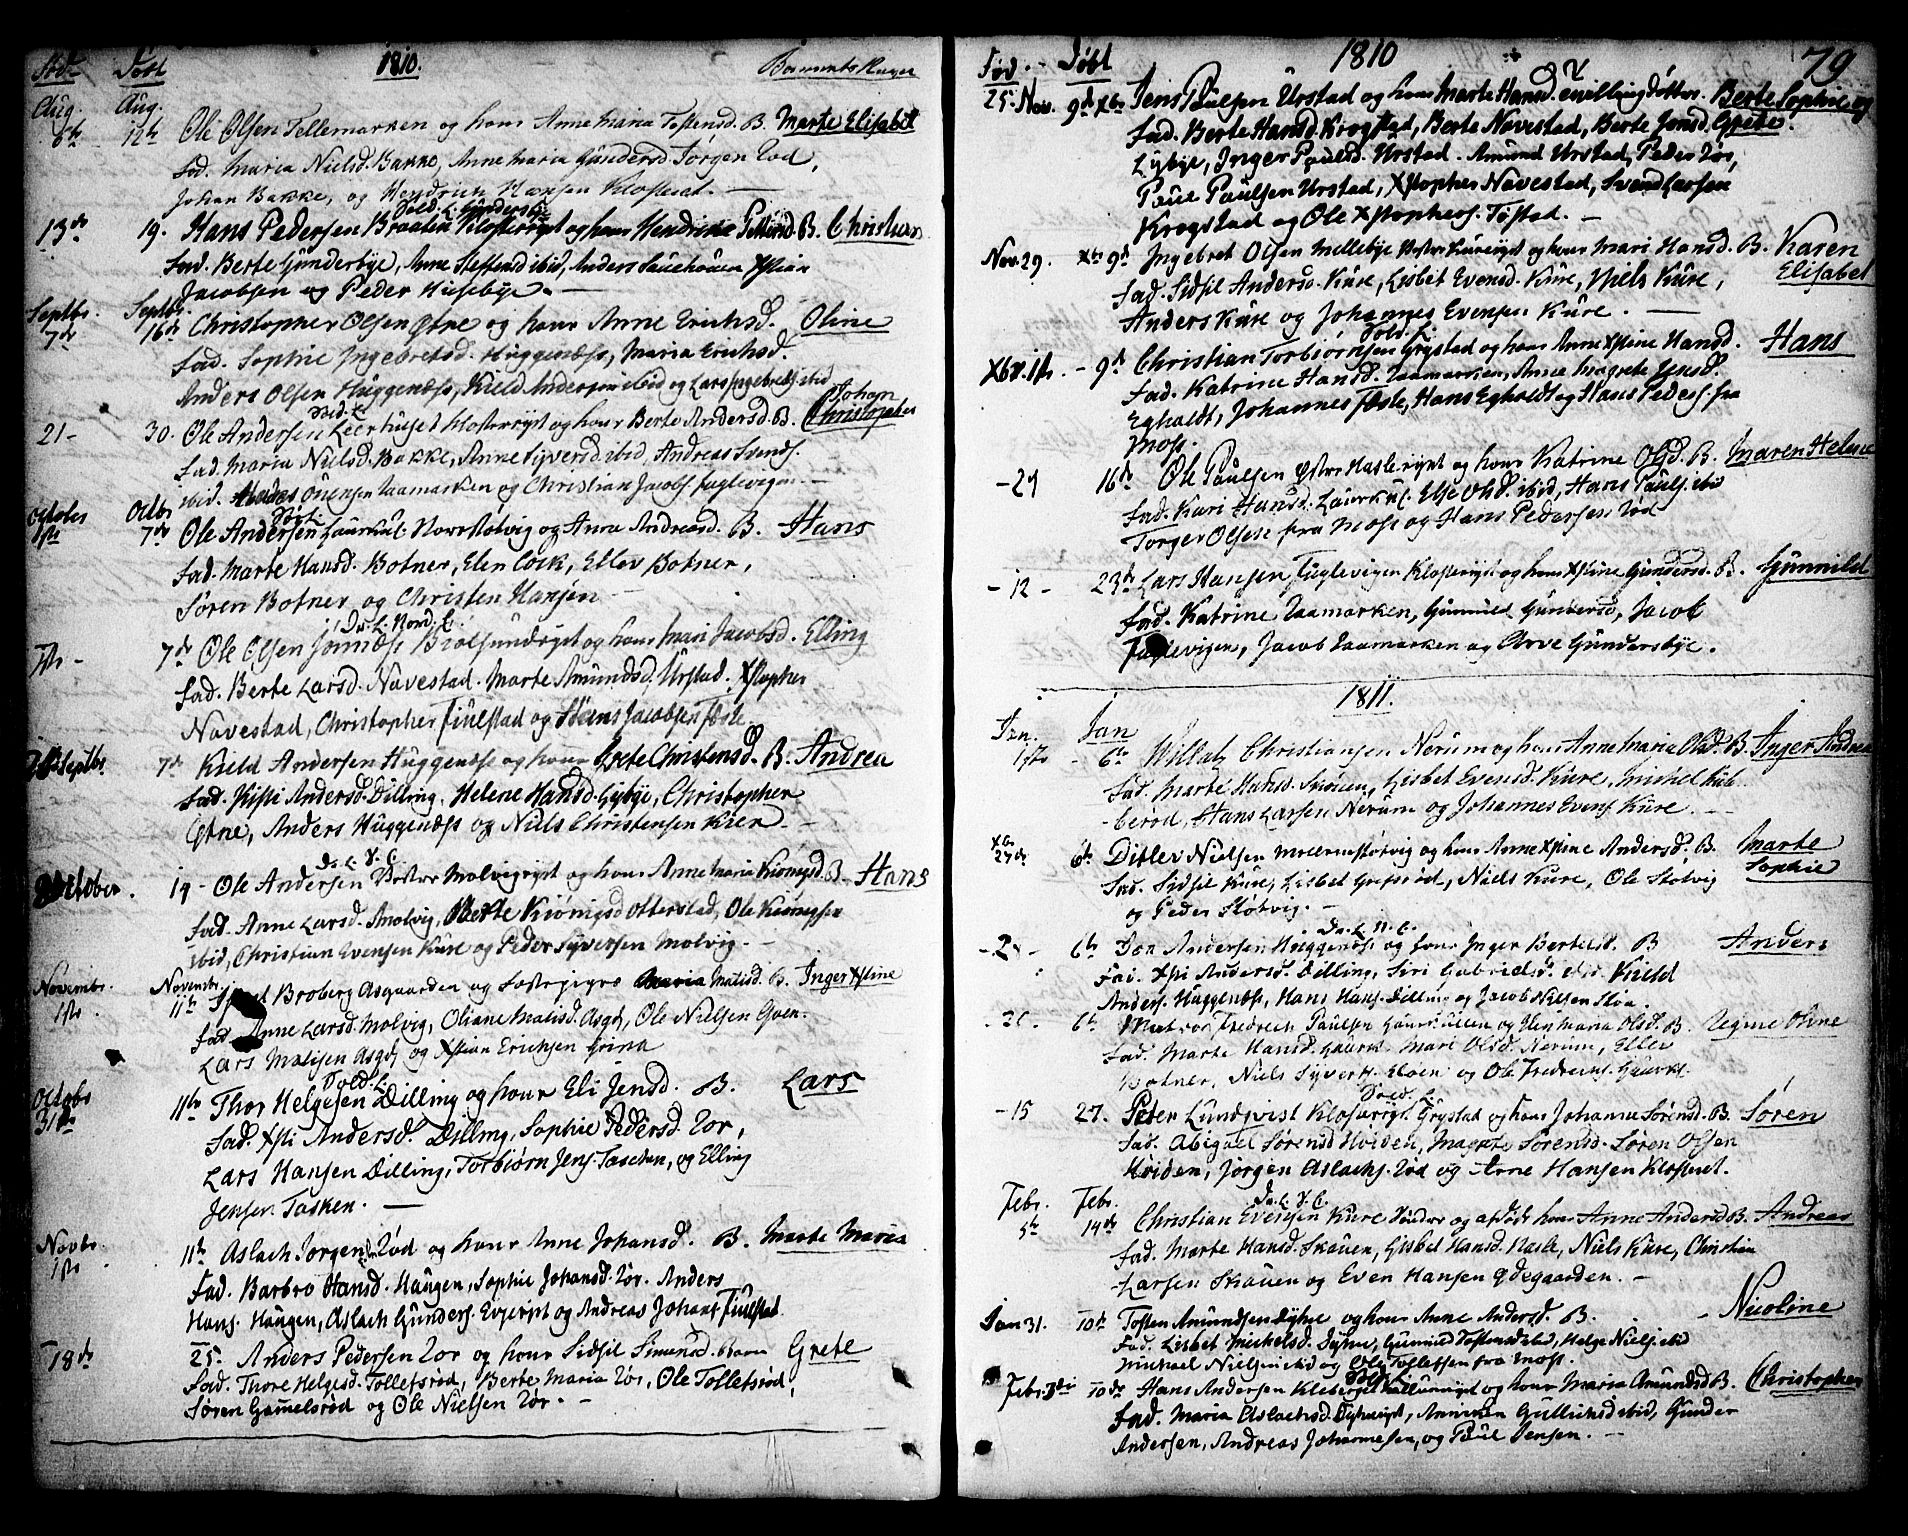 Fød. Døbt 1810. Barnets Navn
Aug. Aug.
6te 12te Ole Olsen Tellemarken og hans Anne Maria Tostensd. B. Marte Elisabet
Fad. Maria Nielsd. Bakke, Anne Maria Gundersd. Jørgen Rød,
Johan Bakke, og Hendrich Hansen Klosteret. —
Sold. L. Gundersbye
13de 19. Hans Pedersen Braaten Klosterrygt og hans Hendrikke Pettersd. B. Christian
Fad. Berte Gunderbye, Anne Steffensd ibid, Anders Sauehouen Xstian
Jacobsen og Peder Husebye. —
Septbr. Septbr.
7de 16de Christopher Olsen Øtne og hans Anne Erichsd. Oline
Fad. Sophie Ingebretsd. Huggenæss, Maria Erichsd.
Anders Olsen Huggenæss, Kield Andersen ibid og Lars Ingebretss. ibid
Johan
21- 30. Ole Andersen Leerhuset Klosterrygt og hans Berte Andersd. B. Christopher
Fad. Maria Nielsd. Bakke, Anne Syversd. ibid, Andreas Svends.
ibid. Anders Ouensen Taamarken og Christian Jacobs. Fuglevigen. —
October Octbr.
1ste 7de Ole Andersen Laurkul. Norr Stotvig og Anna Andreasd. B. Hans
Fad. Marte Hansd. Botner, Elen Cock, Ellev Botner,
Søren Botner og Christen Hansen —
Da. L. Nord. C.
7de Ole Olsen Jonnæss Biølsundrygt og hans Mari Jacobsd. Elling
Fad. Berte Larsd. Navestad. Marte Amundsd. Urstad, Xstopher
Navestad, Christopher Fiulstad og Hans Jacobsen Feste.
Septbr. 7de Kield Andersen Huggenæss og hans Grete Christensd. B. Andrea
Fad. Kisti Andersd. Dilling, Helene Hansd. Lybye, Christopher
Øtne, Anders Huggenæss og Niels Christensen Kier. —
Da. L. V. C.
October. 14- Ole Andersen Vestre Molvigrygt og hans Anne Maria Kiønigsd B. Hans
Fad. Anne Larsd. Molvig, Berte Kiønigsd Otterstad, Ole Kiønigsen
ibid, Christian Evensen Kure og Peder Syversen Molvig. —
Novembr. Novembr.
1ste 11te Broberg Asgaarden og Maria Matisd. B. Inger Xstine
Fad. Anne Larsd. Molvig, Oliane Matisd. Asgd, Ole Nielsen Goen.
Lars Matisen Asgd og Xstian Erichsen Grina
Sold. L.
Octobr 31te 11te Thor Helgesen Dilling og hans Eli Jensd. B. Lars
Fad. Xsti Andersd. Dilling, Sophie Pedersd. Ror,
Lars Hansen Dilling, Torbiørn Jens. Taschen, og Elling
Jensen Tasken. —
Novbr.
1ste 11te Aslach Jørgens. Rød og hans Anne Johansd. B. Marte Maria
Fad. Barbro Hansd. Haugen, Sophie Johansd. Rør. Anders
Hans. Haugen, Aslach Gunders. Evjerygt og Andreas Johans. Fiulstad.
18de 25. Anders Pedersen Ror og hans Sidsil Simensd. Barn Grete
Fad. Thore Helgesd. Tollefsrød, Berte Maria Rør, Ole Tollefsrød,
Søren Gamelsrød og Ole Nielsen Rør. —
Fød. Døbt 1810 79
25. Nov. 9d Xbr Jens Paulsen Urstad og hans Marte Hansd. tvilling døttre. Berte Sophie og
Fad. Berte Hansd Krogstad, Berte Navestad, Berte Jonsd. Grete.
Lybye, Inger Paulsd. Urstad. Amund Urstad, Peder Rør,
Paul Paulsen Urstad, Xstopher Navestad, Svend Larsen
Krogstad og Ole Xstophers. Tøstad. —
Nov. 29. Xbr 9d Ingebret Olsen Mellebye Vestre Kurerygt og hans Mari Hansd. B. Karen
Fad. Sidsil Andersd. Kure, Lisbet Evensd. Kure, Niels Kure, Elisabet
Anders Kure og Johannes Evensen Kure. —
Sold. L.
Xbr. 1ste - 9d Christian Torbiørnsen Grystad og hans Anne Xstine Hansd. Hans
Fad. Katrine Hansd. Taamarken, Anne Magrete Jensd.
Egholdt, Johannes Feste, Hans Egholdt og Hans Peders. fra
Moss.
16de Ole Paulsen Østre Hasle rygt og hans Katrine Olsd. B. Maren Helene
Fad. Kari Hansd. Laurkul. Else Olsd. ibid, Hans Pauls. ibid
Torger Olsen fra Moss og Hans Pedersen Rød
-12- 23de Lars Hansen, Fuglevigen Klosterrygt og hans Xstine Gundersd. B. Gunnild
Fad. Katrine Taamarken, Gunnild Gundersd, Jacob
Fuglevigen, Jacob Taamarken og Arve Gundersbye.
1811.
Jan. Jan
1ste - 6te Willatz Christiansen Nerum og hans Anne Maria Olsd. B. Inger Andrea
Fad. Marte Hansd. Skouen, Lisbet Evensd. Kure, Michel Kals-
berød, Hans Larsen Nerum og Johannes Evens. Kure. —
Xbr
27de 6te Ditlev Nielsen Mellem Støtvig og hans Anne Xstine Andersd. B. Marte
Fad. Sidsil Kure, Lisbet Grefsrød, Niels Kure, Ole Støtvig Sophie
og Peder Støtvig. —
Da. L. N. C.
6te Jon Andersen Huggenæss og hans Inger Bertelsd. B Anders
Fad. Xsti Andersd. Dilling, Siri Gabrielsd. ibid. Kield
Anders. Huggenæss, Hans Hans. Dilling og Jacob Nielsen Sloa.
-26- 6te Fredrech Paulsen Laurkullen og Maria Olsd. B. Regine Oline
Fad. Marte Hansd. Laurk. Mari Olsd. Nerum, Ellev
Botner, Niels Syvers. Eloen og Ole Fredrechs. Laurkl.
Sold. L.
-15 27. Peter Lundqvist Klosterrygt. Grystad og hans Johanne Sørensd. B. Søren
Fad. Abigael Sørensd Hviden, Magrete Sørensd. Søren Olsen
Hviden, Jørgen Aslachs. Rød og Arne Hansen Klosteret.
Febr. Febr. Da. L. V. C.
5te 14de Christian Evensen Kure Søndre og afdøde hans Anne Andersd B. Andreas
Fad. Marte Hansd. Skouen, Lisbet Hansd. Hasle, Niels Kure, Christian
Larsen Skouen og Even Hansen Ødegaarden. —
Jan 31. 10de Tosten Amundsen Dyhre og hans Anne Andersd. B. Nicoline
Fad. Lisbet Mickelsd. Dyhre, Gunnild Tostensd ibid, Helge Niels. ibid
Michael Nielsen ibid og Ole Tollefsen fra Moss.
Sold. L.
Febr. 3die 10de Hans Andersen Kleberget Kallumrygt og hans Maria Amundsd B. Christopher
Fad. Maria Aslachsd. Dyhrrygt, Anniken Gulliksd ibid, Gunder
Andersen, Andreas Johannesen, og Paul Jensen. —